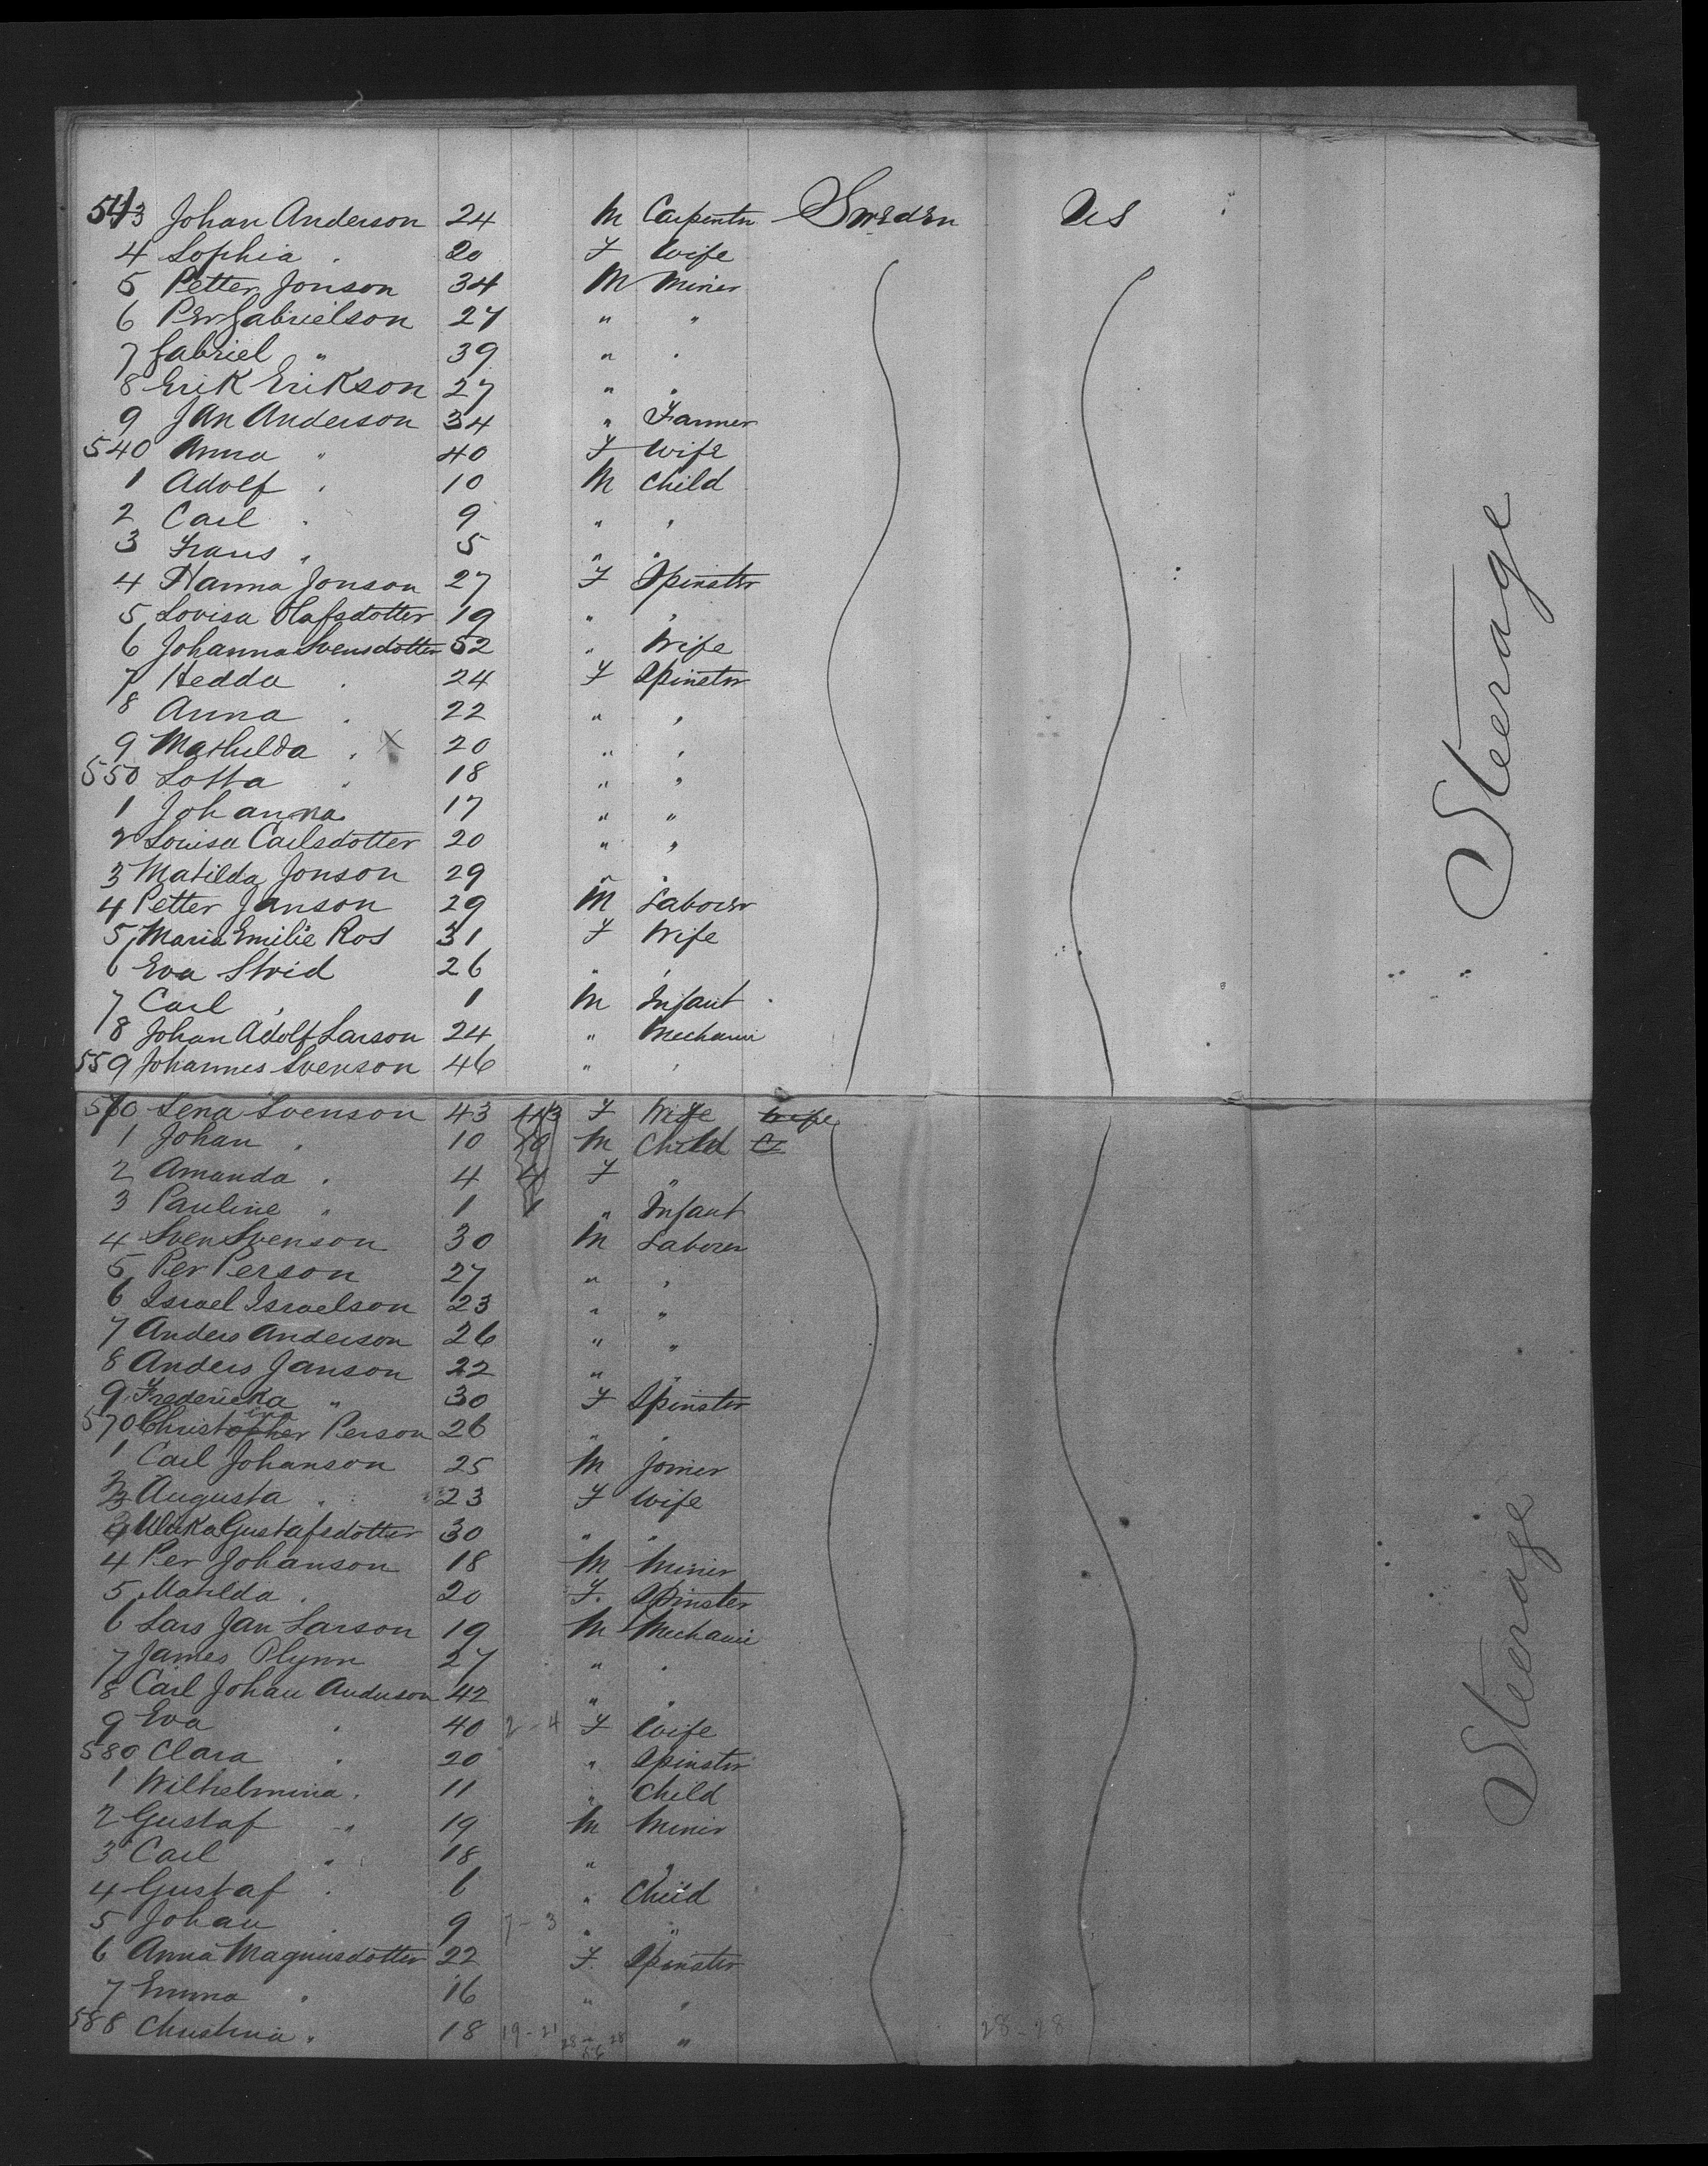 543 Johan Anderson 24 M Carpenter Sweden US
4 Sophia . 20 F Wife
5 Petter Jonson 34 M Miner
6 Per Gabrielson 27 " "
7 Gabriel " 39 " .
8 Erik Erikson 27 " "
9 Jan Anderson 34 " Farmer
540 Anna " 40 F Wife
1 Adolf . 10 M Child
2 Carl . 9 " "
3 Frans . 5 " "
4 Hanna Jonson 27 F Spinster
5 Lovisa Olafsdotter 19 " "
6 Johanna Svensdotter 52 " Wife
7 Hedda . 24 F Spinster
8 Anna . 22 " "
9 Mathilda . X 20 " "
550 Lotta . 18 " "
1 Johanna 17 " "
2 Louisa Carlsdotter 20 " "
3 Matilda Jonson 29 " "
4 Petter Janson 29 M Laborer
5 Maria Emilie Ros 31 F Wife
6 Eva Strid 26 " "
7 Carl " 1 M Infant
8 Johan Adolf Larson 24 " Mechanic
559 Johannes Svenson 46 " "
560 Lena Svenson 43 43 F Wife Wife
1 Johan . 10 10 M Child Ch
2 Amanda . 4 4 F "
3 Pauline " 1 1 " Infant
4 Sven Svenson 30 M Laborer
5 Per Person 27 " "
6 Israel Israelson 23 " "
7 Anders Anderson 26 " "
8 Anders Janson 22 " "
9 Fredericka " 30 F Spinster
570 Christopher Person 26 " "
1 Carl Johanson 25 M Joiner
2 Augusta . 23 F Wife
3 Ulrika Gustafsdotter 30 " "
4 Per Johanson 18 M Miner
5 Matilda . 20 F. Spinster
6 Lars Jan Larson 19 M Mechanic
7 James Plynn 27 " .
8 Carl Johan Anderson 42 " "
9 Eva . 40 2-4 F Wife
580 Clara . 20 " Spinster
1 Wilhelmina . 11 " Child
2 Gustaf " 19 M Miner
3 Carl " 18 " "
4 Gustaf . 6 " Child
5 Johan . 9 7-3 " "
6 Anna Magnusdotter 22 F. Spinster
7 Emma . 16 " "
588 Christina . 18 19-21 28 28 " 28-28
Steerage
Steerage